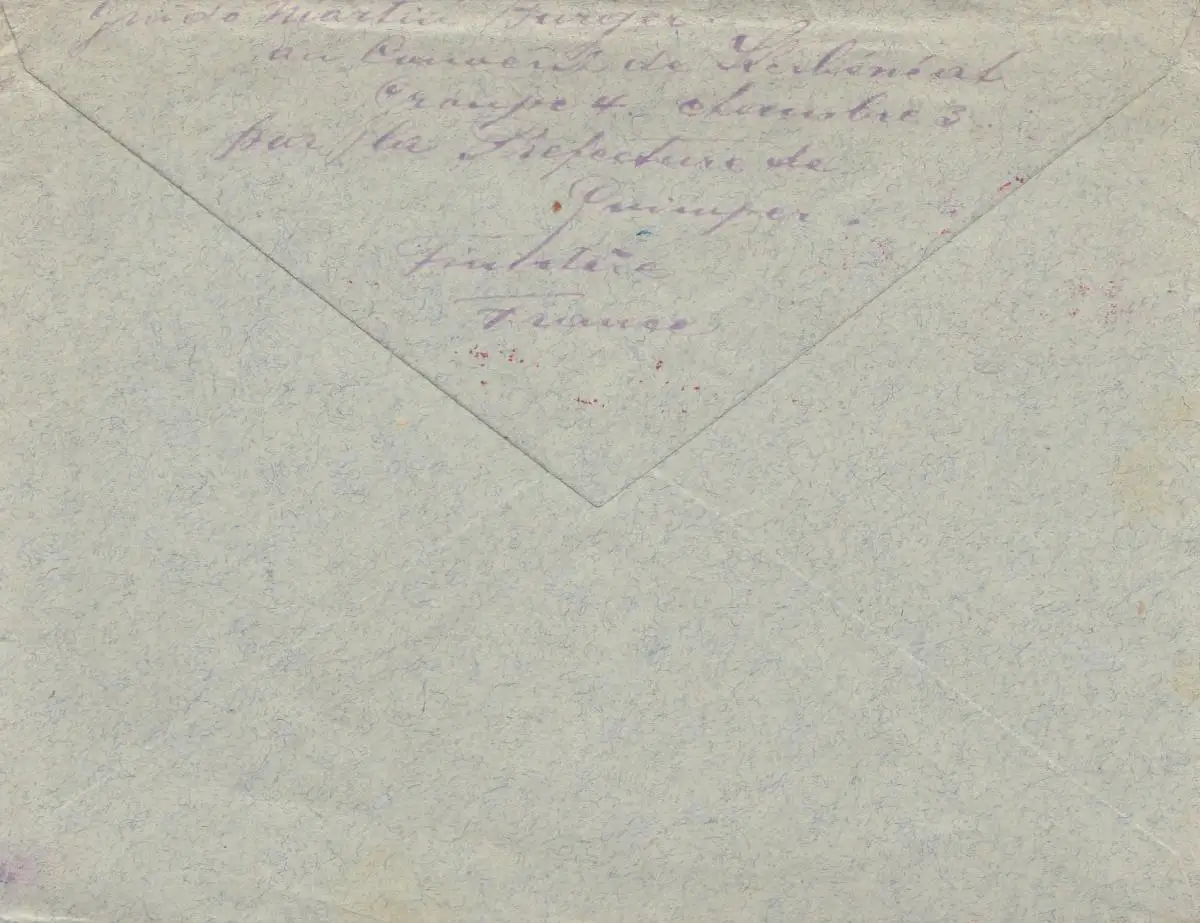 Guido Martin Burger
au Couvent de Kerbénéat
Groupe 4. chambre 3.
par la Préfecture de
Quimper.
Finistère
France